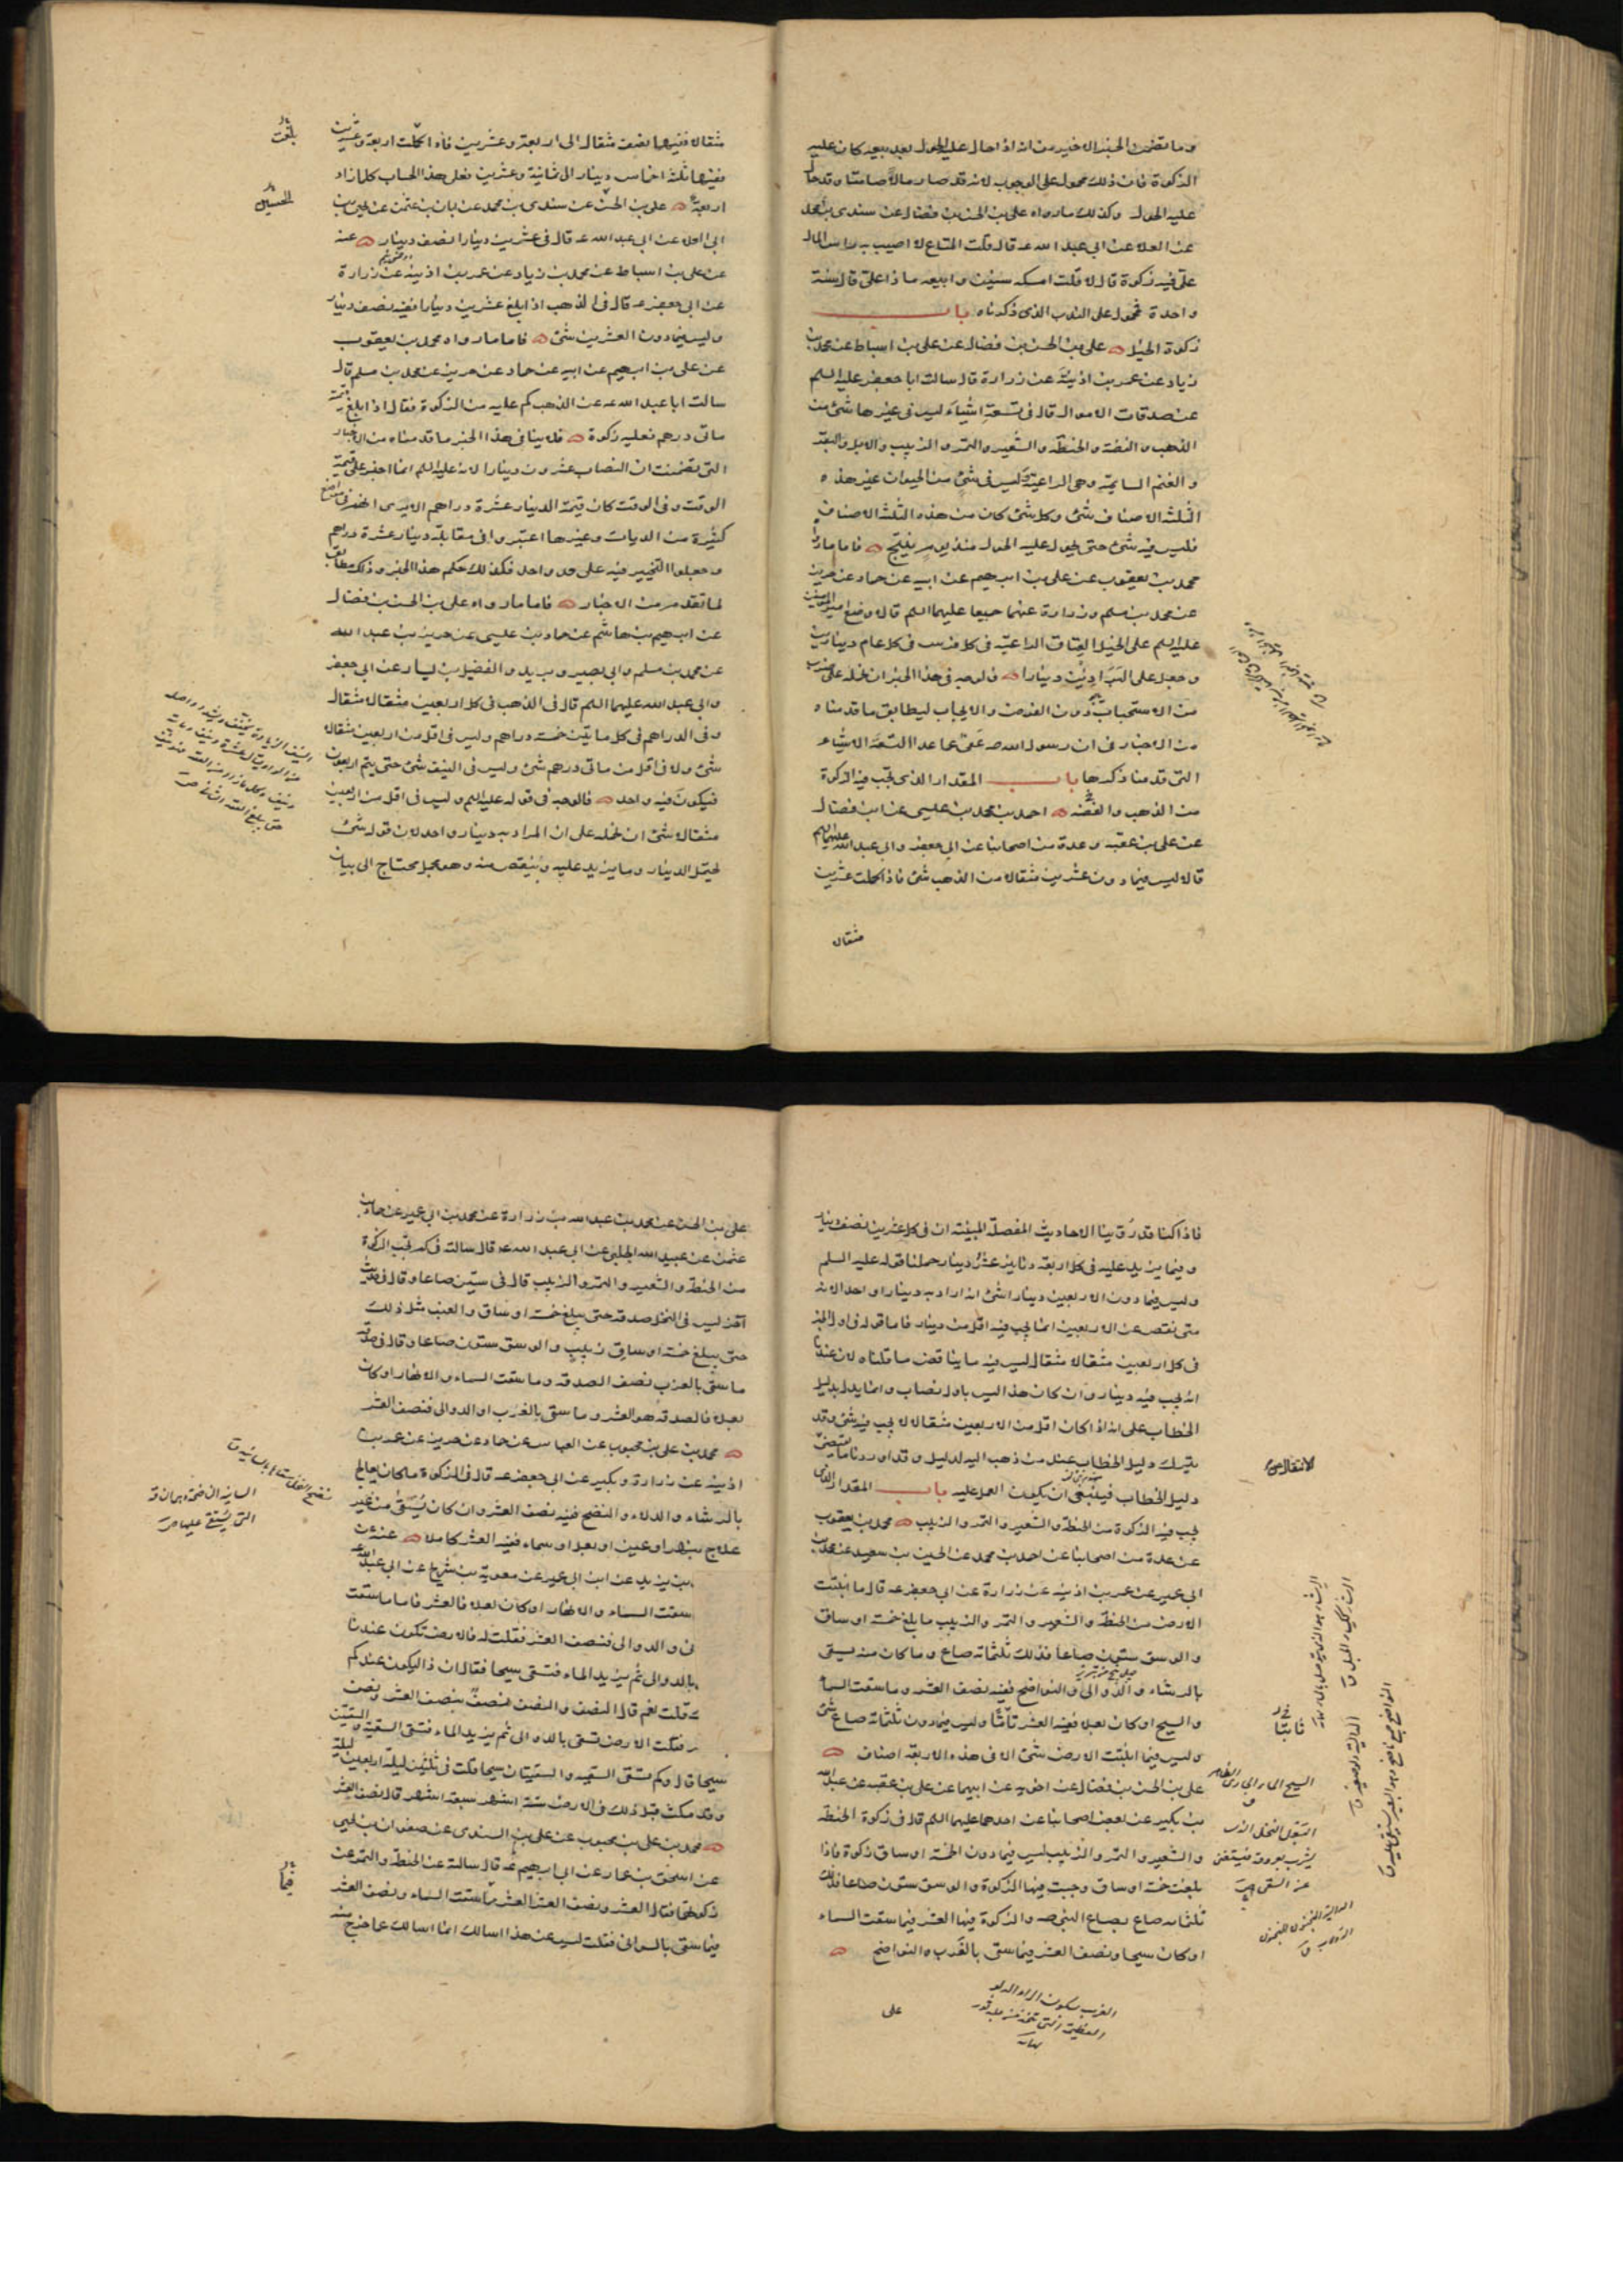 وما تضمن الخبر الاخير من انه اذا حال عليه الحول بعد بيعه كان عليه
الزكوة فان ذلك محمول على الوجوب لانه قد صار مالا صامتا وقد حال
عليه الحول وكذلك ما رواه على بن الحسن بن فضال عن سندى بن محمد
عن العلا عن ابى عبد الله عه قال قلت المتاع لا اصيب به راس المال
على فيه زكوة قال لا قلت امسكه سنين وابيعه ماذا على قال سنة
واحدة محمول على الندب الذى ذكرناه باب
زكوة الخيل على بن الحسن بن فضال عن على بن اسباط عن محمد بن
زياد عن عمر بن اذينة عن زرارة قال سالت ابا جعفر عليه السلم
عن صدقات الاموال قال فى تسعة اشياء ليس فى غيرها شئ من
الذهب والفضة والحنطة والشعير والتمر والزبيب والابل والبقر
والغنم السايمة وهى الراعية وليس فى شئ من الحيوان غير هذه
الثلثة الاصناف شئ وكل شئ كان من هذه الثلثة الاصناف
فليس فيه شئ حتى يحول عليه الحول منذ يوم ينتج فاما ما رواه
محمد بن يعقوب عن على بن ابرهيم عن ابيه عن حماد عن حريز
عن محمد بن مسلم وزرارة عنهما جميعا عليهما السلم قال وضع امير المؤمنين
عليه السلم على الخيل العتاق الراعية فى كل فرس فى كل عام دينارين
وجعل على البراذين دينارا فالوجه فى هذا الخبر ان نحمله على ضرب
من الاستحباب دون الفرض والايجاب ليطابق ما قدمناه
من الاخبار فى ان رسول الله صه عفى عما عدا التسعة الاشياء
التى قدمنا ذكرها باب المقدار الذى تجب فيه الزكوة
من الذهب والفضة احمد بن محمد بن عيسى عن ابن فضال
عن على بن عقبه وعدة من اصحابنا عن ابى جعفر وابى عبد الله عليهما السلم
قالا ليس فيما دون عشرين مثقالا من الذهب شئ فاذا كملت عشرين
مثقالا
مثقالا ففيها نصف مثقال الى اربعة وعشرين فاذا كملت اربعة وعشرين
ففيها ثلثة اخماس دينار الى ثمانية وعشرين فعلى هذا الحساب كلما زاد
اربعة على بن الحسن عن سندى بن محمد عن ابان بن عثمن عن يحيى بن
ابى العلا عن ابى عبد الله عه قال فى عشرين دينارا نصف دينار عنه
عن على بن اسباط عن محمد بن زياد عن عمر بن اذينة عن زرارة
عن ابى جعفر عه قال فى الذهب اذا بلغ عشرين دينارا ففيه نصف دينار
وليس فيما دون العشرين شئ فاما ما رواه محمد بن يعقوب
عن على بن ابرهيم عن ابيه عن حماد عن حريز عن محمد بن مسلم قال
سالت ابا عبد الله عه عن الذهب كم عليه من الزكوة فقال اذا بلغ قيمته
مائتى درهم فعليه زكوة فلا ينافى هذا الخبر ما قدمناه من الاخبار
التى تضمنت ان النصاب عشرون دينارا لانه عليه السلم انما اخبر على قيمة
الوقت وفى الوقت كان قيمة الدينار عشرة دراهم الا يرى انهم فى مواضع
كثيرة من الديات وغيرها اعتبروا فى مقابلة دينار عشرة دراهم
وجعلوا التخيير فيه على حد واحد فكذلك حكم هذا الخبر وذلك مطابق
لما تقدم من الاخبار فاما ما رواه على بن الحسن بن فضال
عن ابرهيم بن هاشم عن حماد بن عيسى عن حريز بن عبد الله
عن محمد بن مسلم وابى بصير وبريد والفضيل بن يسار عن ابى جعفر
وابى عبد الله عليهما السلم قال فى الذهب فى كل اربعين مثقالا مثقال
وفى الدراهم فى كل مايتين خمسة دراهم وليس فى اقل من اربعين مثقالا
شئ ولا فى اقل من مائتى درهم شئ وليس فى النيف شئ حتى يتم اربعون
فيكون فيه واحد فالوجه فى قوله عليه السلم وليس فى اقل من اربعين
مثقالا شئ ان نحمله على ان المراد به دينار واحد لان قوله شئ
يحتمل الدينار وما يزيد عليه وينقص منه وهو مجمل محتاج الى بيان
بلغت
الحسين
فاذا كنا قد روينا الاحاديث المفصلة المبينة ان فى كل عشرين نصف دينار
وفيما يزيد عليه فى كل اربعة دنانير عشر دينار حملنا قوله عليه السلم
وليس فيما دون الاربعين دينارا شئ انه اراد به دينارا واحدا لانه
متى نقص عن الاربعين انما يجب فيه اقل من دينار فاما قوله فى اول الخبر
فى كل اربعين مثقالا مثقال ليس فيه ما يناقض ما قلناه لان عندنا
انه يجب فيه دينار وان كان هذا ليس باول نصاب وانما يدل بدليل
الخطاب على انه اذا كان اقل من الاربعين مثقالا لا يجب فيه شئ وقد
يترك دليل الخطاب عند من ذهب اليه لدليل وقد اوردنا ما يقتضى
دليل الخطاب فينبغى ان يكون العمل عليه باب المقدار الذى
تجب فيه الزكوة من الحنطة والشعير والتمر والزبيب محمد بن يعقوب
عن عدة من اصحابنا عن احمد بن محمد عن الحسين بن سعيد عن محمد بن
ابى عمير عن عمر بن اذينه عن زرارة عن ابى جعفر عه قال ما انبتت
الارض من الحنطة والشعير والتمر والزبيب ما بلغ خمسة اوساق
والوسق ستون صاعا فذلك ثلثمائة صاع وما كان منه يسقى
بالرشاء والدوالى والنواضح ففيه نصف العشر وما سقت السماء
والسيح او كان بعلا ففيه العشر تاما وليس فيما دون ثلثمائة صاع شئ
وليس فيما انبتت الارض شئ الا فى هذه الاربعة اصناف
على بن الحسن بن فضال عن اخويه عن ابيهما عن على بن عقبه عن عبد الله
بن بكير عن بعض اصحابنا عن احدهما عليهما السلم قال فى زكوة الحنطة
والشعير والتمر والزبيب ليس فيما دون الخمسة اوساق زكوة فاذا
بلغت خمسة اوساق وجبت فيها الزكوة والوسق ستون صاعا فذلك
ثلثمائة صاع بصاع النبى صه والزكوة فيها العشر فيما سقت السماء
او كان سيحا ونصف العشر فيما سقى بالغرب والنواضح
السيح الماء الجارى الظاهر
البعل النخل الذى
يشرب بعروقه فيستغنى
عن السقى
الغرب بسكون الراء الدلو
العظيمة التى تتخذ من جلد ثور
نهاية
على
على بن الحسن عن محمد بن عبد الله بن زرارة عن محمد بن ابى عمير عن حماد بن
عثمن عن عبيد الله الحلبى عن ابى عبد الله عه قال سالته فى كم تجب الزكوة
من الحنطة والشعير والتمر والزبيب قال فى ستين صاعا وقال فى حديث
آخر ليس فى النخل صدقة حتى يبلغ خمسة اوساق والعنب مثل ذلك
حتى يبلغ خمسة اوساق زبيب والوسق ستون صاعا وقال فى صدقة
ما سقى بالغرب نصف الصدقة وما سقت السماء والانهار او كان
بعلا فالصدقة هو العشر وما سقى بالغرب او الدوالى فنصف العشر
محمد بن على بن محبوب عن العباس عن حماد عن حريز عن عمر بن
اذينه عن زرارة وبكير عن ابى جعفر عه قال فى الزكوة ما كان يعالج
بالرشاء والدلاء والنضح ففيه نصف العشر وان كان يسقى من غير
علاج بنهر او عين او بعل او سماء ففيه العشر كاملا عنه عن
بن يزيد عن ابن ابى عمير عن معوية بن شريح عن ابى عبد الله
سقت السماء والانهار او كان بعلا فالعشر فاما ما سقت
نى والدوالى فنصف العشر فقلت له فالارض تكون عندنا
بالدوالى ثم يزيد الماء فتسقى سيحا فقال ان ذا ليكون عندكم
قلت نعم قال النصف والنصف نصف بنصف العشر ونصف
فقلت الارض تسقى بالدوالى ثم يزيد الماء فتسقى السقية والسقيتين
سيحا قال وكم تسقى السقية والسقيتان سيحا قلت فى ثلثين ليلة اربعين ليلة
وقد مكث قبل ذلك فى الارض ستة اشهر سبعة اشهر قال نصف العشر
محمد بن على بن محبوب عن على بن السندى عن صفوان بن يحيى
عن اسحق بن عمار عن ابى ابرهيم عه قال سالته عن الحنطة والتمر عن
زكوتهما فقال العشر ونصف العشر العشر مما سقت السماء ونصف العشر
فيما سقى بالسوانى فقلت ليس عن هذا اسالك انما اسالك عما خرج منه